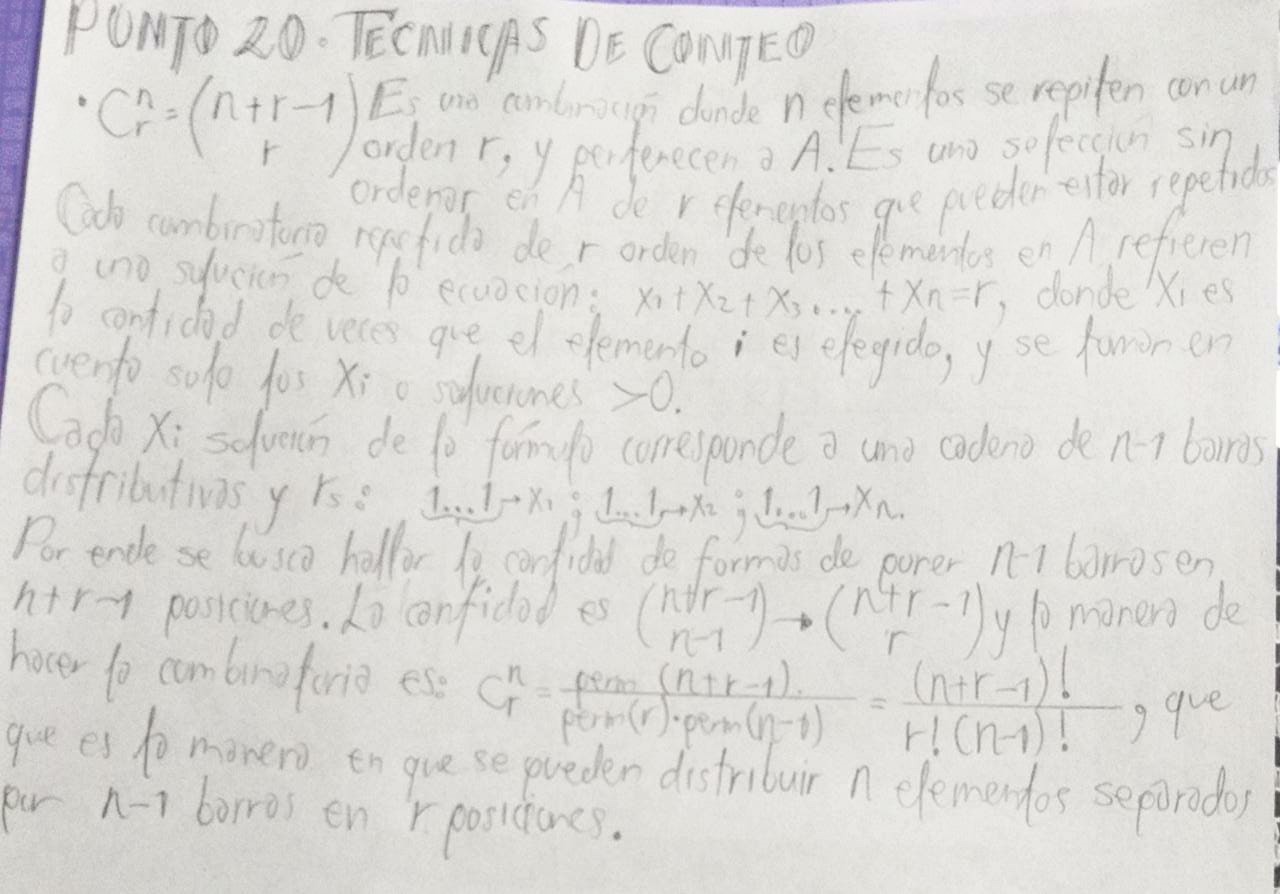 PUNTO 20. TECNICAS DE CONTEO
• C^n_r = (n+r-1 / r) Es una combinación donde n elementos se repiten con un
orden r, y pertenecen a A. Es una selección sin
ordenar en A de r elementos que pueden estar repetidos
Cada combinatoria repetida de r orden de los elementos en A refieren
a una solución de la ecuación: x1+x2+x3....+xn=r, donde xi es
la cantidad de veces que el elemento i es elegido, y se toman en
cuenta solo los xi o soluciones >0.
Cada xi solución de la fórmula corresponde a una cadena de n-1 barras
distributivas y rs: 1...1→x1 ; 1...1→x2 ; 1...1→xn.
Por ende se busca hallar la cantidad de formas de poner n-1 barras en
n+r-1 posiciones. La cantidad es (n+r-1 / n-1) → (n+r-1 / r) y la manera de
hacer la combinatoria es: C^n_r = perm (n+r-1) / perm(r)·perm(n-1) = (n+r-1)! / r!(n-1)!, que
que es la manera en que se pueden distribuir n elementos separados
por n-1 barras en r posiciones.